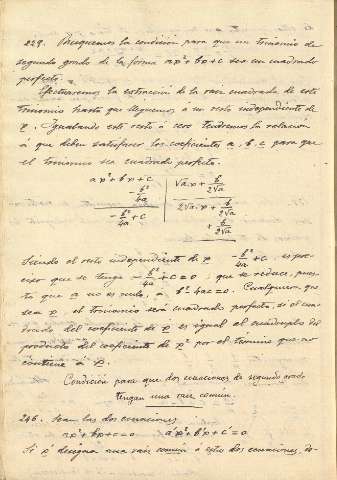 229. Busquemos la condición para que un trinomio de
segundo grado de la forma ax²+bx+c sea un cuadrado
perfecto.
Efectuaremos la extracción de la raíz cuadrada de este
trinomio hasta que lleguemos á un resto independiente de
x. Igualando este resto á cero tendremos la relación
á que deben satisfacer los coeficientes a, b, c para que
el trinomio sea cuadrado perfecto.
ax²+bx+c | √a.x + b/2√a
- b²/4a | 2√a.x + b/2√a
- b²/4a + c | + b/2√a
Siendo el resto independiente de x - b²/4a + c, es
que se tenga - b²/4a + c = 0, que se reduce, pues-
to que a no es nulo, á b² - 4ac = 0. Cualquiera que
sea x, el trinomio será cuadrado perfecto, si el cua-
drado del coeficiente de x es igual al cuádruplo del
producto del coeficiente de x² por el término que no
contiene á x.
Condición para que dos ecuaciones de segundo grado
tengan una raíz común.
246. Sean las dos ecuaciones
ax²+bx+c=0 a'x²+b'x+c'=0
Si x' designa una raíz común á estas dos ecuaciones,